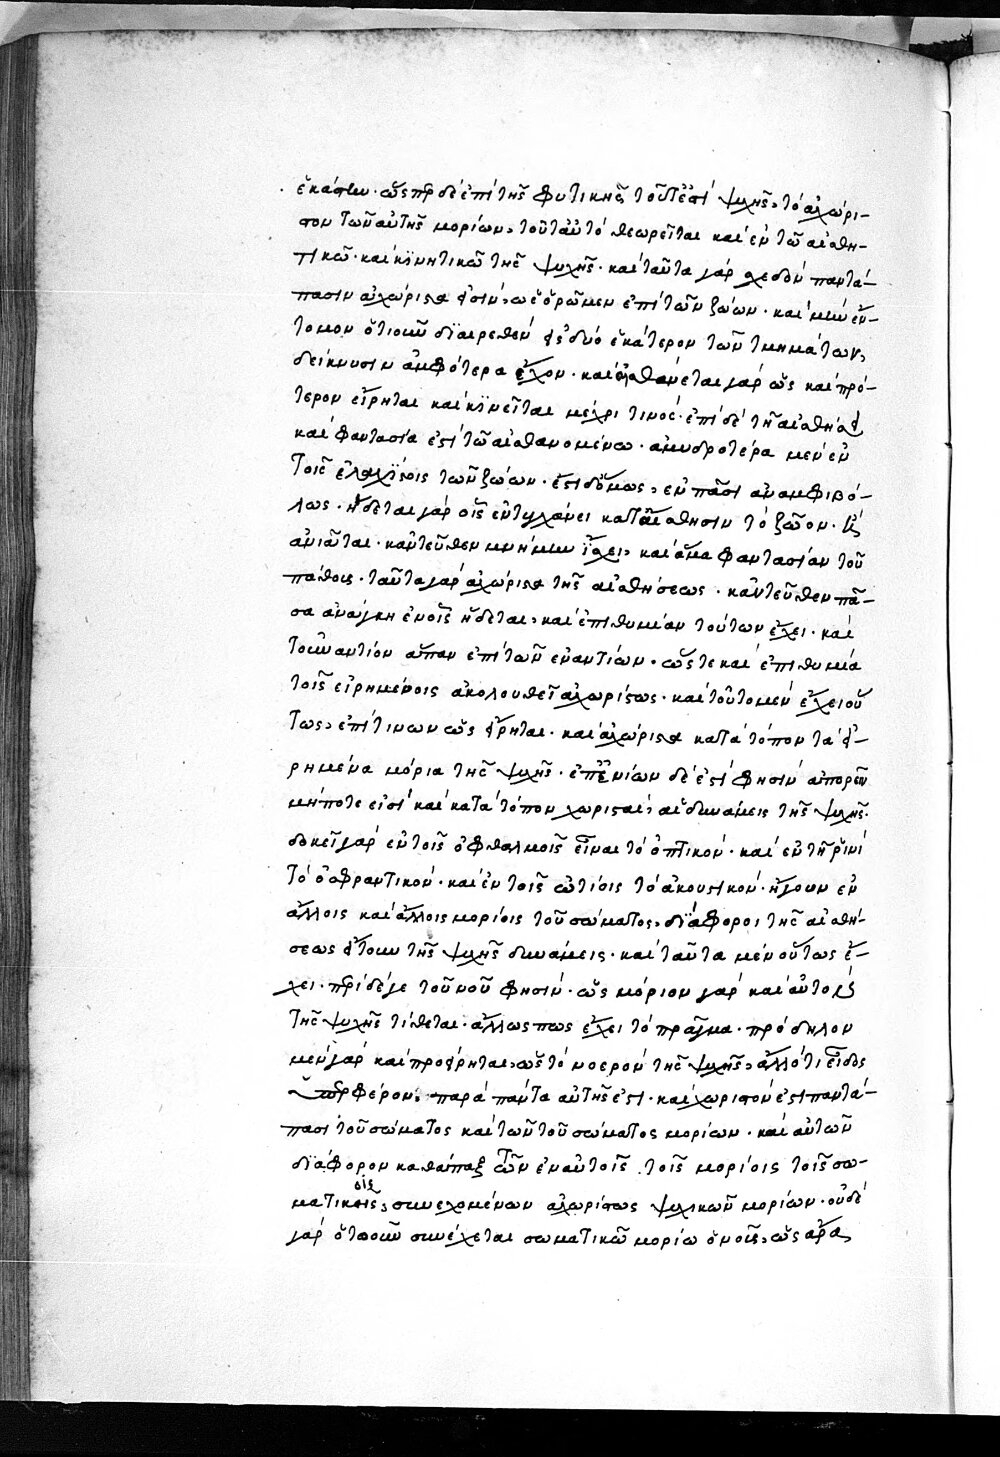 ἑκάστω. ὥσπερ δὲ ἐπὶ τῆς φυτικῆς τοῦτέστι ψυχῆς, τὸ ἀχώρι-
στον τῶν αὐτῆς μορίων, τοῦτ αὐτὸ θεωρεῖται καὶ ἐν τῶ αἰσθη-
τικῶ. καὶ κϊνητικῶ τῆς ψυχῆς. καὶ ταῦτα γὰρ σχεδὸν παντά-
πασιν ἀχώριστα εἰσιν, ὡς ὁρῶμεν ἐπὶ τῶν ζώων. καὶ μὴν ἔν-
τομον ὁτιοῦν διαιρεθὲν εἰς δύο ἑκάτερον τῶν τμημάτων,
δείκνυσιν ἀμφότερα ἔχον. καὶ αἰσθάνεται γὰρ ὡς καὶ πρό-
τερον εἴρηται καὶ κϊνεῖται μέχρι τινός. ἐπὶ δὲ τῆ αἰσθήσει
καὶ φαντασία ἐστὶ τῶ αἰσθανομένω. ἀμυδροτέρα μὲν ἐν
τοῖς ἐλαχίστοις τῶν ζώων. ἔστι δ' ὅμως, ἐν πᾶσι ἀναμφιβό-
λως. ἥδεται γὰρ οἷς ἐντυγχάνει κατ' αἴσθησιν τὸ ζῶον. καὶ
ἀνιᾶται. κἀντεῦθεν μνήμην ἴσχει, καὶ ἅμα φαντασίαν τοῦ
πάθους. ταῦτα γὰρ ἀχώριστα τῆς αἰσθήσεως. κἀντεῦθεν πᾶ-
σα ἀνάγκη ἐν οἷς ἥδεται, καὶ ἐπιθυμίαν τούτων ἔχει. καὶ
τοὐναντίον ἅπαν ἐπὶ τῶν ἐναντίων. ὥστε καὶ ἐπιθυμία
τοῖς εἰρημένοις ἀκολουθεῖ ἀχωρίστως. καὶ τοῦτο μὲν ἔχει οὕ
τως, ἐπί τινων ὡς εἴρηται. καὶ ἀχώριστα κατὰ τόπον τὰ εἰ-
ρημένα μόρια τῆς ψυχῆς. ἐπ' ἐνίων δέ ἐστί φησιν ἀπορεῖν
μήποτε εἰσὶ καὶ κατὰ τόπον χωρισταὶ, αἱ δυνάμεις τῆς ψυχῆς.
δοκεῖ γὰρ ἐν τοῖς ὀφθαλμοῖς εἶναι τὸ ὀπτικόν. καὶ ἐν τῆ ῥινὶ
τὸ ὀσφραντικόν. καὶ ἐν τοῖς ὠτίοις τὸ ἀκουστικόν. ἤγουν ἐν
ἄλλοις καὶ ἄλλοις μορίοις τοῦ σώματος, διάφοροι τῆς αἰσθή-
σεως εἴτουν τῆς ψυχῆς δυνάμεις. καὶ ταῦτα μὲν οὕτως ἔ-
χει. περὶ δέ γε τοῦ νοῦ φησίν. ὡς μόριον γὰρ καὶ αὐτὸς
τῆς ψυχῆς τίθεται. ἄλλως πως ἔχει τὸ πρᾶγμα. πρόδηλον
μὲν γὰρ καὶ προείρηται, ὡς τὸ νοερὸν τῆς ψυχῆς, ἄλλό τι εἶδος
ὑπερφέρον. παρὰ πάντα αὐτῆς ἐστι. καὶ χωριστόν ἐστι παντά-
πασι τοῦ σώματος καὶ τῶν τοῦ σώματος μορίων. καὶ αὐτῶν
διάφορον καθάπαξ τῶν ἐν αὐτοῖς τοῖς μορίοις τοῖς σω-
ματικοῖς, συνεχομένων ἀχωρίστως ψυχικῶν μορίων. οὐδὲ
γὰρ ὁτωοῦν συνέχεται σωματικῶ μορίω ὁ νοῦς, ὡς ἄρα,